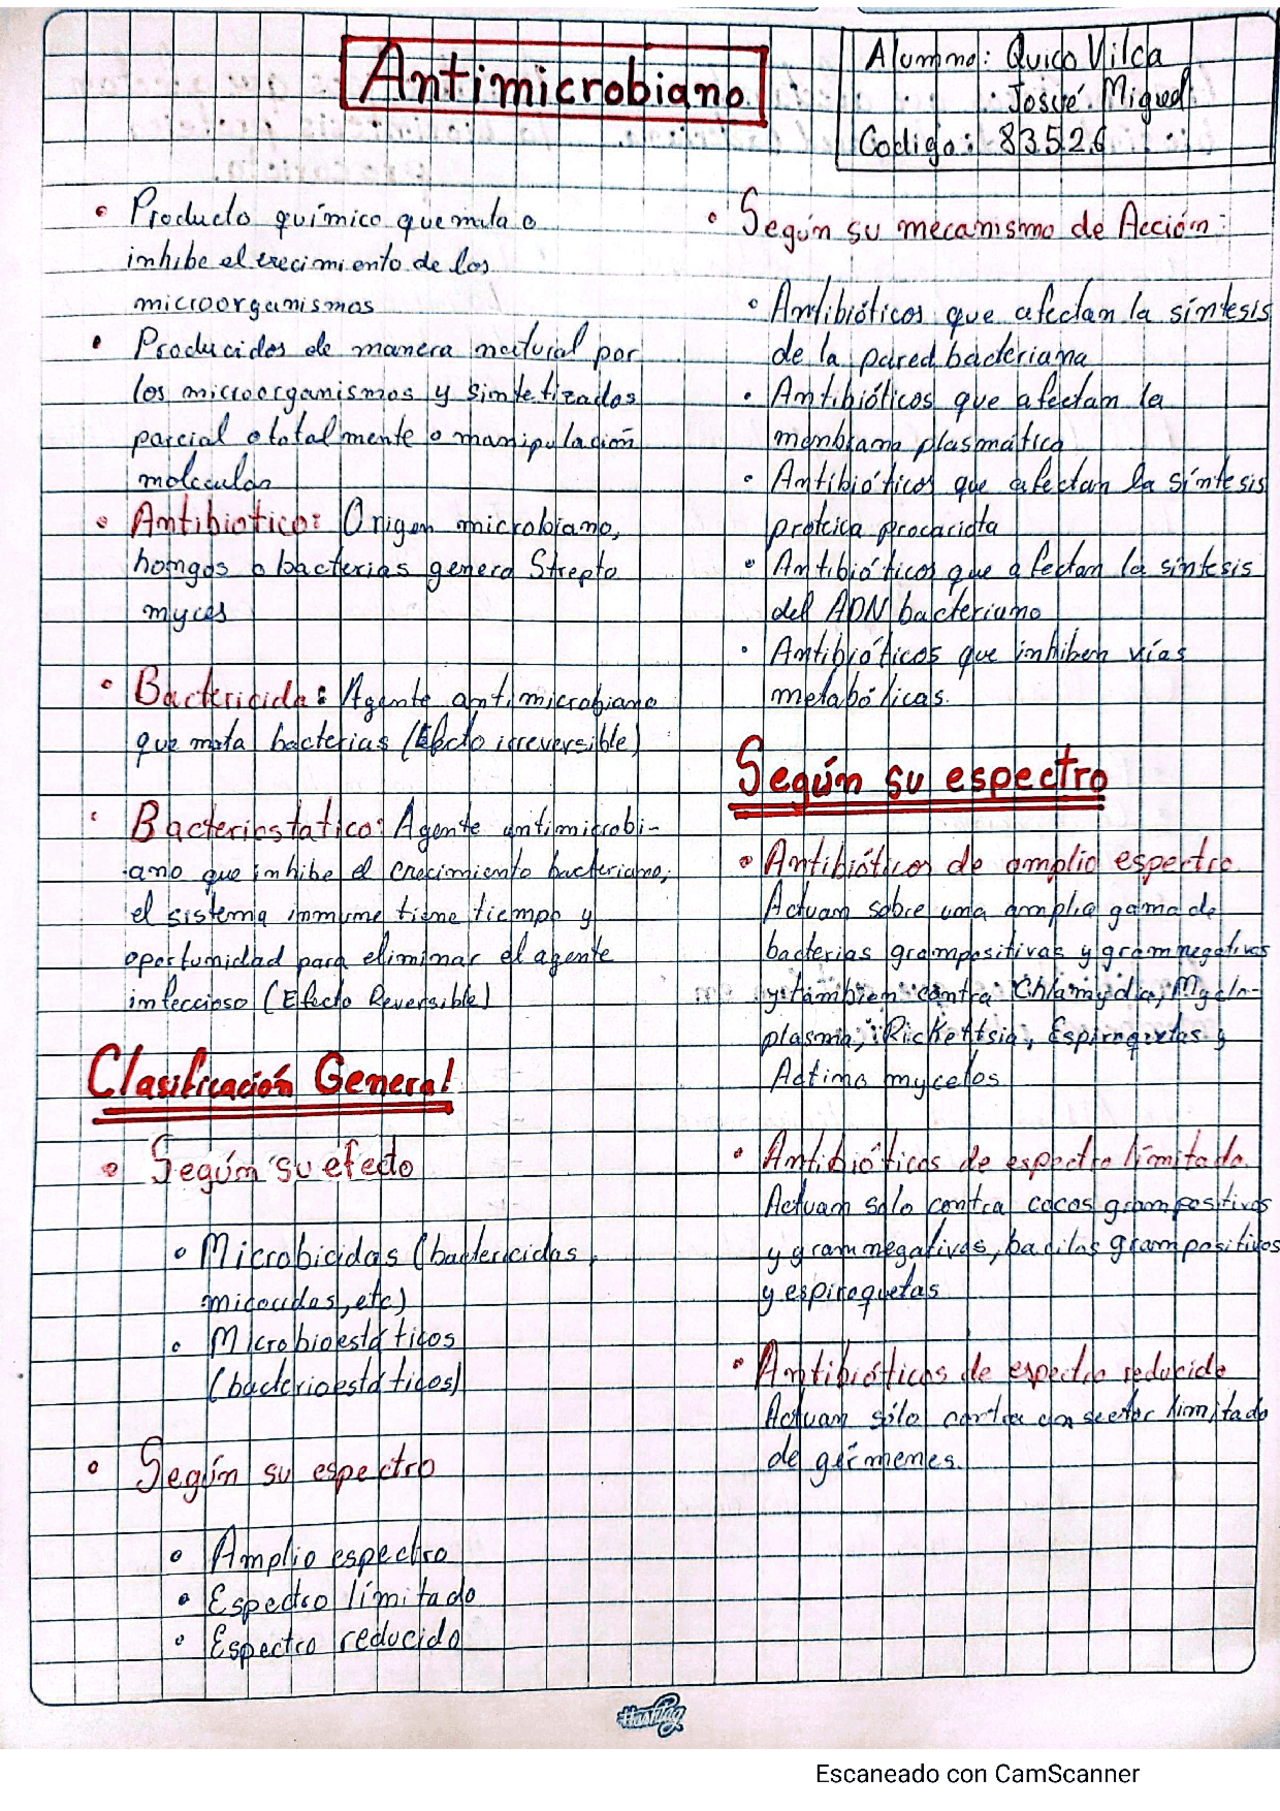 Antimicrobiano
Alumno: Quico Vilca
Josué Miguel
Codigo: 83526
• Producto químico que mata o
inhibe el crecimiento de los
microorganismos
• Producidos de manera natural por
los microorganismos y sintetizados
parcial o totalmente o manipulación
molecular
• Antibiotico: Origen microbiano,
hongos o bacterias genero Strepto
myces
• Bactericida: Agente antimicrobiano
que mata bacterias (Efecto irreversible)
• Bacteriostatico: Agente antimicrobi-
ano que inhibe el crecimiento bacteriano,
el sistema inmune tiene tiempo y
oportunidad para eliminar el agente
infeccioso (Efecto Reversible)
Clasificación General
• Según su efecto
• Microbicidas (bactericidas,
micocidas, etc)
• Microbioestáticos
(bacterioestáticos)
• Según su espectro
• Amplio espectro
• Espectro límitado
• Espectro reducido
• Según su mecanismo de Acción:
• Antibióticos que afectan la síntesis
de la pared bacteriana
• Antibióticos que afectan la
membrana plasmática
• Antibióticos que afectan la síntesis
proteica procariota
• Antibióticos que afectan la síntesis
del ADN bacteriano
• Antibióticos que inhiben vías
metabólicas.
Según su espectro
• Antibióticos de amplio espectro.
Actuan sobre una amplia gama de
bacterias grampositivas y gramnegativas
y tambien contra Chlamydia, Myco-
plasma, Rickettsia, Espiroquetas y
Actinomycetos
• Antibióticos de espectro límitado.
Actuan solo contra cocos grampositivos
y gramnegativos, bacilos grampositivos
y espiroquetas
• Antibióticos de espectro reducido
Actuan sólo contra un sector limitado
de gérmenes.
#Hashtag
Escaneado con CamScanner